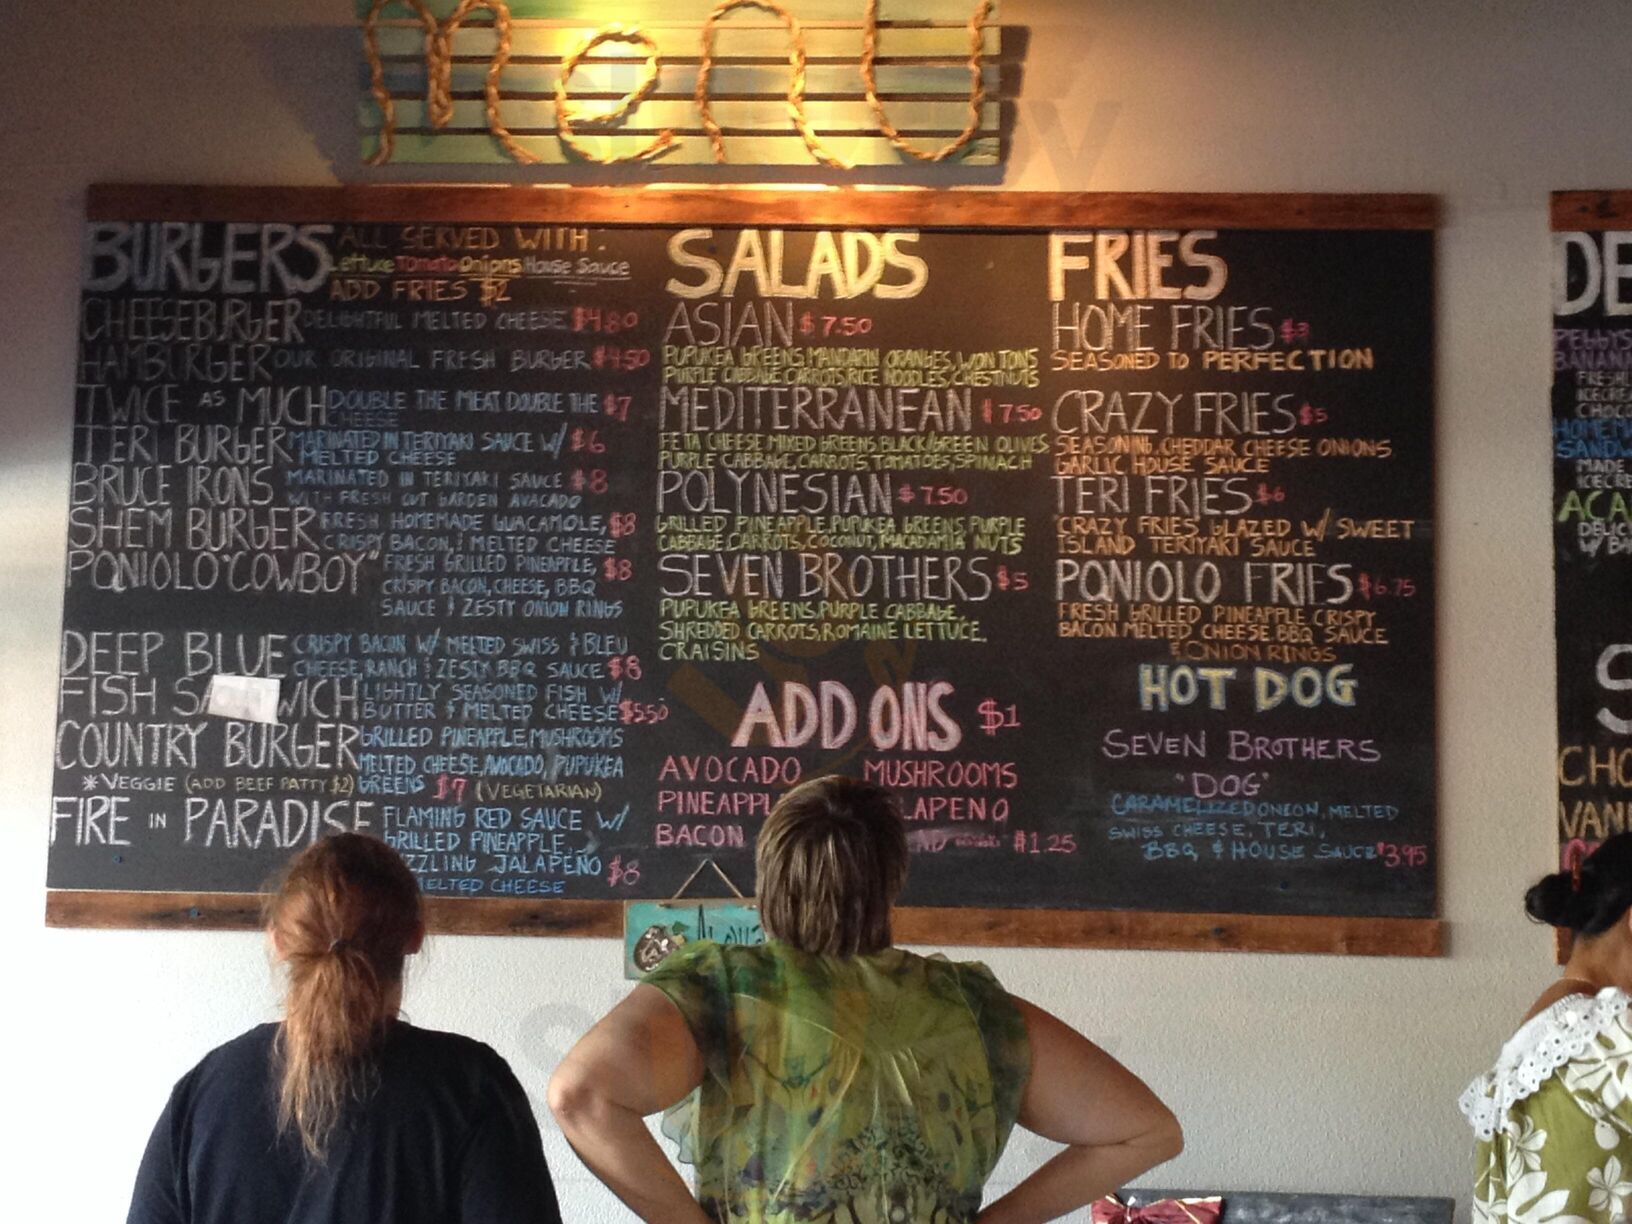 menu
BURGERS ALL SERVED WITH:
Lettuce Tomato Onions House Sauce
ADD FRIES $2
CHEESEBURGER DELIGHTFUL MELTED CHEESE $4.80
HAMBURGER OUR ORIGINAL FRESH BURGER $4.50
TWICE AS MUCH DOUBLE THE MEAT DOUBLE THE $7
CHEESE
TERI BURGER MARINATED IN TERIYAKI SAUCE W/ $6
MELTED CHEESE
BRUCE IRONS MARINATED IN TERIYAKI SAUCE $8
WITH FRESH CUT GARDEN AVACADO
SHEM BURGER FRESH HOMEMADE GUACAMOLE, $8
CRISPY BACON, & MELTED CHEESE
PANIOLO "COWBOY" FRESH GRILLED PINEAPPLE, $8
CRISPY BACON, CHEESE, BBQ
SAUCE & ZESTY ONION RINGS
DEEP BLUE CRISPY BACON W/ MELTED SWISS & BLEU
CHEESE, RANCH & ZESTY BBQ SAUCE $8
FISH SA WICH LIGHTLY SEASONED FISH W/
BUTTER & MELTED CHEESE $5.50
COUNTRY BURGER GRILLED PINEAPPLE, MUSHROOMS
MELTED CHEESE, AVOCADO, PUPUKEA
* VEGGIE (ADD BEEF PATTY $2) GREENS $7 (VEGETARIAN)
FIRE IN PARADISE FLAMING RED SAUCE W/
GRILLED PINEAPPLE,
ZZLING JALAPEÑO $8
MELTED CHEESE
SALADS
ASIAN $7.50
PUPUKEA GREENS, MANDARIN ORANGES, WON TONS
PURPLE CABBAGE, CARROTS, RICE NOODLES, CHESTNUTS
MEDITERRANEAN $7.50
FETA CHEESE MIXED GREENS, BLACK/GREEN OLIVES
PURPLE CABBAGE, CARROTS, TOMATOES, SPINACH
POLYNESIAN $7.50
GRILLED PINEAPPLE, PUPUKEA GREENS, PURPLE
CABBAGE, CARROTS, COCONUT, MACADAMIA NUTS
SEVEN BROTHERS $5
PUPUKEA GREENS, PURPLE CABBAGE,
SHREDDED CARROTS, ROMAINE LETTUCE,
CRAISINS
ADD ONS $1
AVOCADO MUSHROOMS
PINEAPPL LAPENO
BACON $1.25
FRIES
HOME FRIES $3
SEASONED TO PERFECTION
CRAZY FRIES $5
SEASONING, CHEDDAR CHEESE ONIONS
GARLIC HOUSE SAUCE
TERI FRIES $6
CRAZY FRIES GLAZED W/ SWEET
ISLAND TERIYAKI SAUCE
PANIOLO FRIES $6.75
FRESH GRILLED PINEAPPLE CRISPY
BACON MELTED CHEESE BBQ SAUCE
& ONION RINGS
HOT DOG
SEVEN BROTHERS
"DOG"
CARAMELIZED ONION, MELTED
SWISS CHEESE, TERI,
BBQ, & HOUSE SAUCE $3.95
DE
PEGGYS
BANANA
FRESHL
ICECREA
CHOCO
HOMEM
SANDW
MADE
ICECRE
ACA
DELIC
W/ BA
S
CHO
VANI